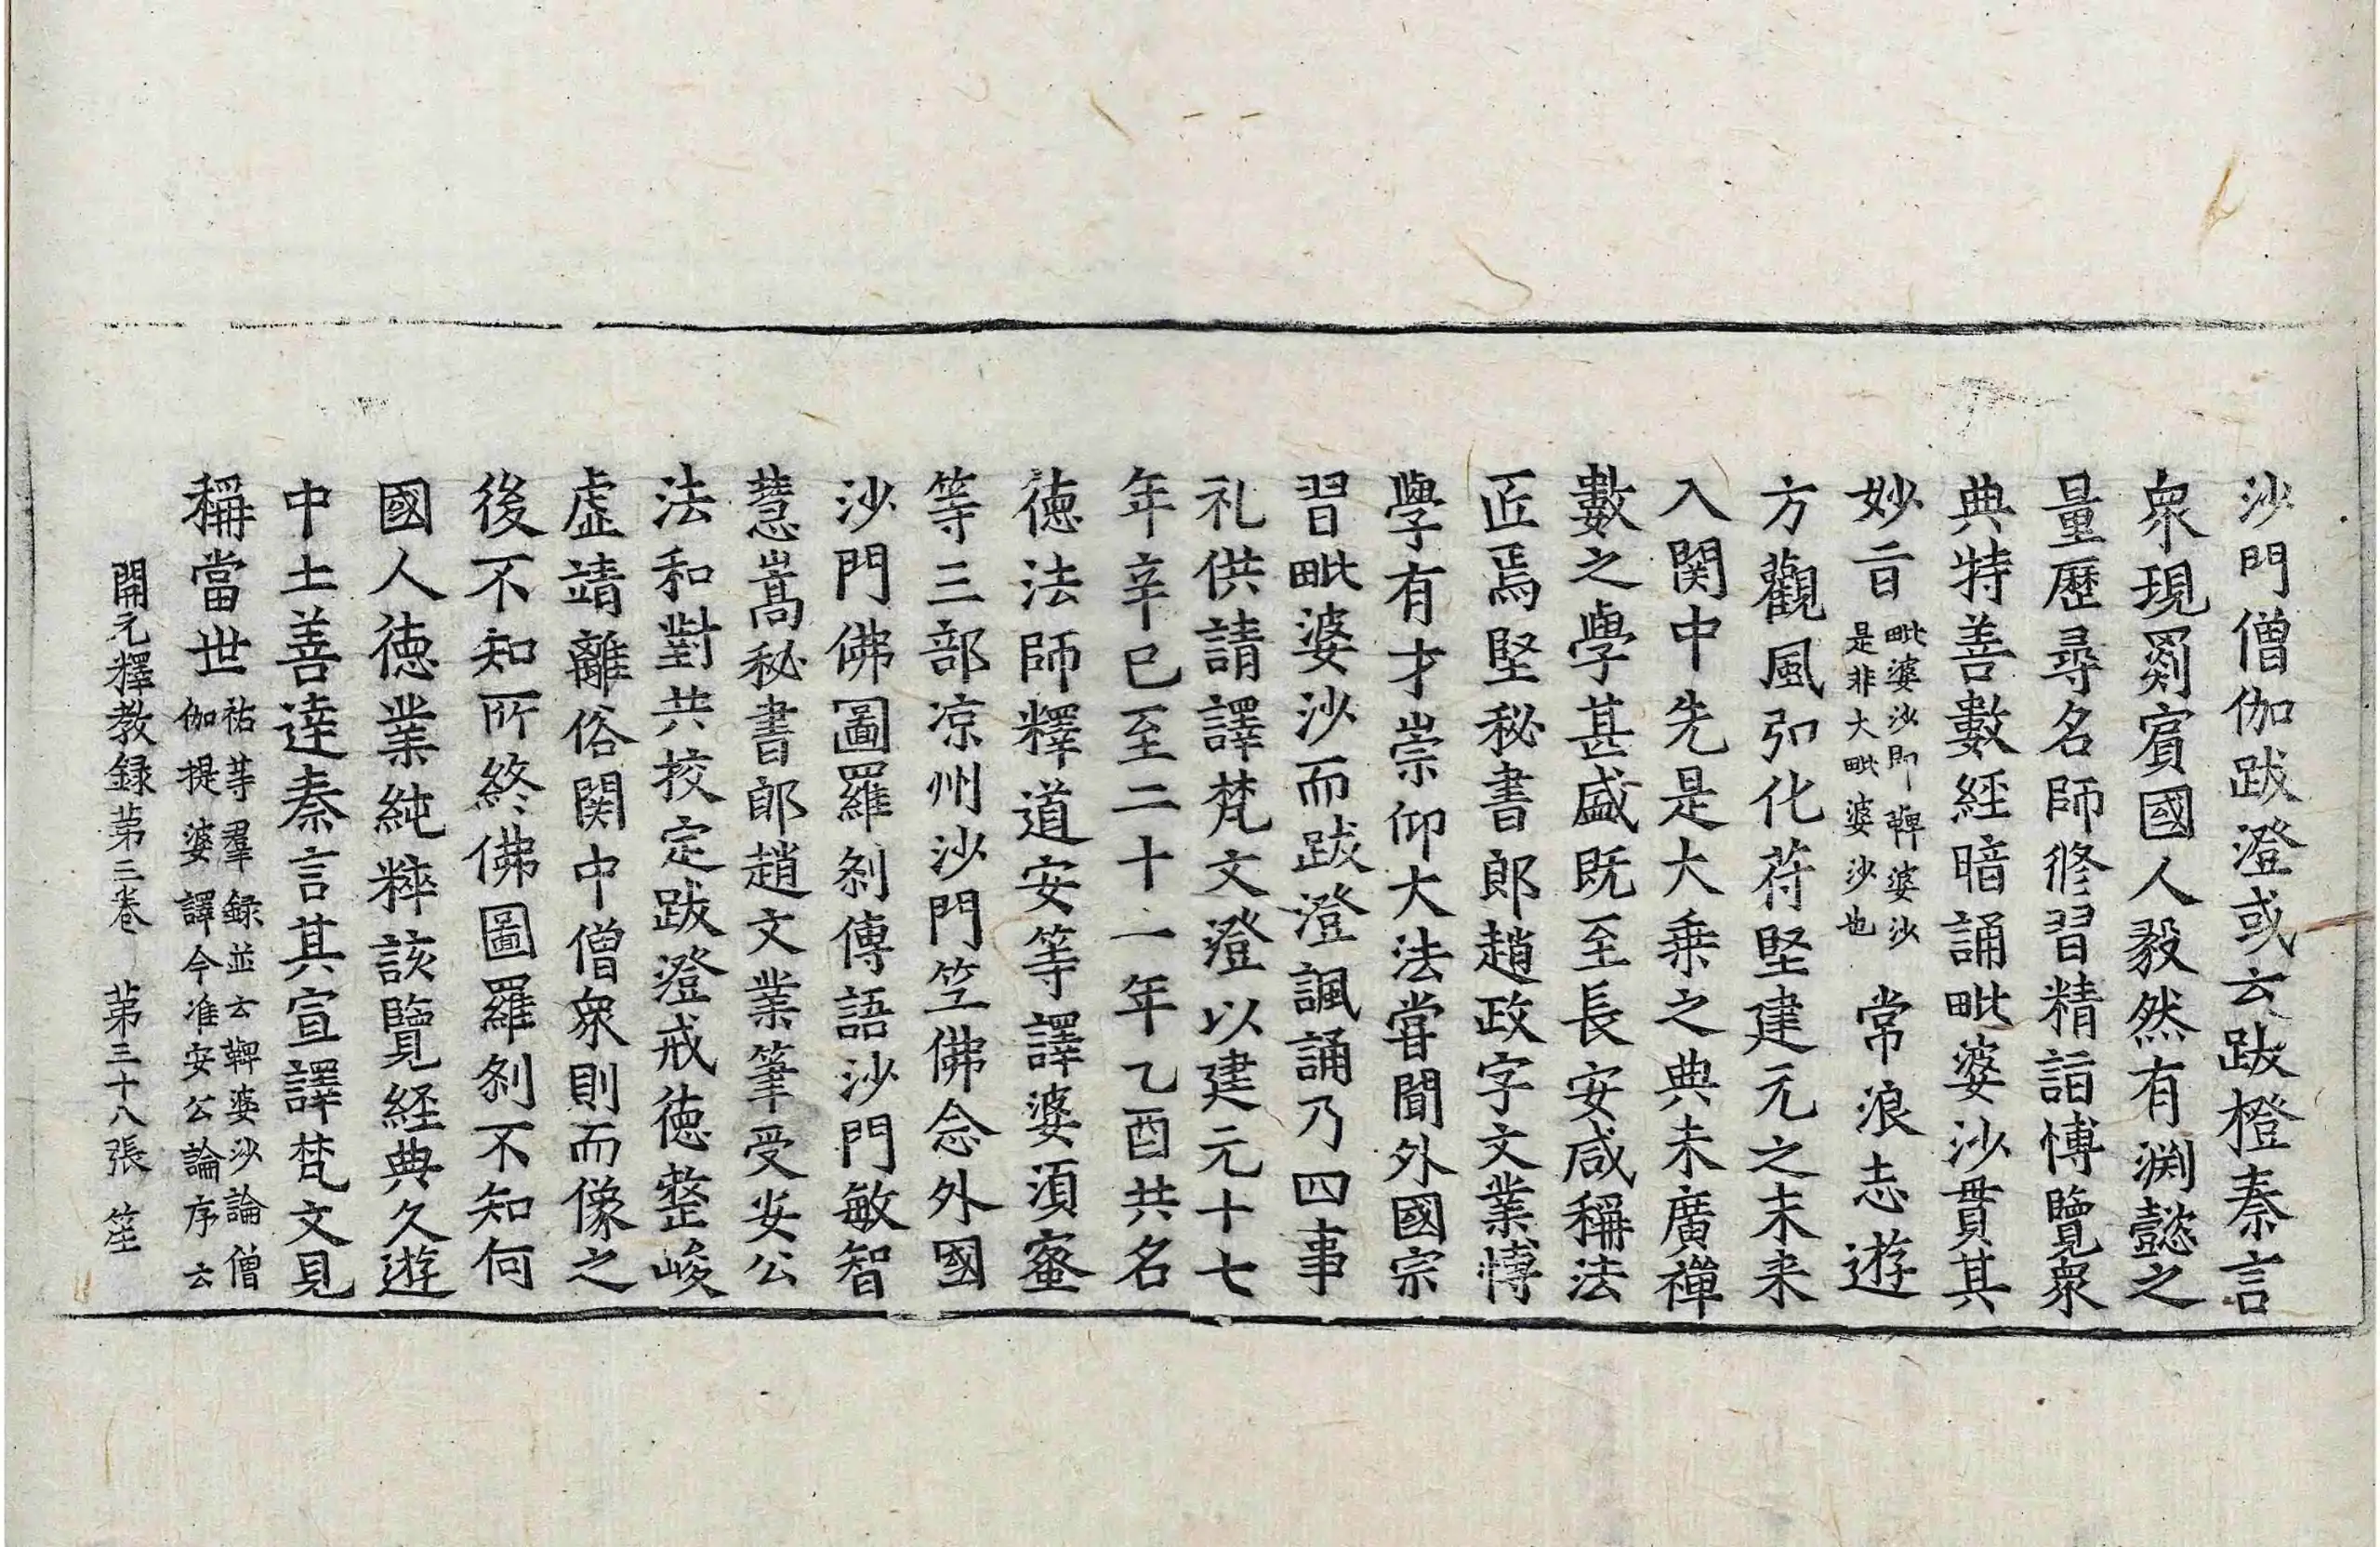 沙門僧伽跋澄或云跋橙秦言
衆現罽賓國人毅然有渊懿之
量歷尋名師修習精詣愽覽衆
典特善數經暗誦毗婆沙貫其
妙旨毗婆沙即鞞婆沙是非大毗婆沙也常浪志遊
方觀風弘化苻堅建元之末来
入関中先是大乗之典未廣禪
數之學甚盛既至長安咸稱法
匠焉堅秘書郎趙政字文業愽
學有才崇仰大法甞聞外國宗
習毗婆沙而跋澄諷誦乃四事
礼供請譯梵文澄以建元十七
年辛巳至二十一年乙酉共名
徳法師釋道安等譯婆湏蜜
等三部凉州沙門笁佛念外國
沙門佛圖羅刹傳語沙門敏智
慧嵩秘書郎趙文業筆受安公
法和對共挍定跋澄戒徳整峻
虛靖離俗関中僧衆則而像之
後不知所終佛圖羅刹不知何
國人徳業純粹該覽経典久遊
中土善達秦言其宣譯梵文見
稱當世祐等羣録並云鞞婆沙論僧伽提婆譯今准安公論序云
開元釋教録苐三卷　苐三十八張　笙